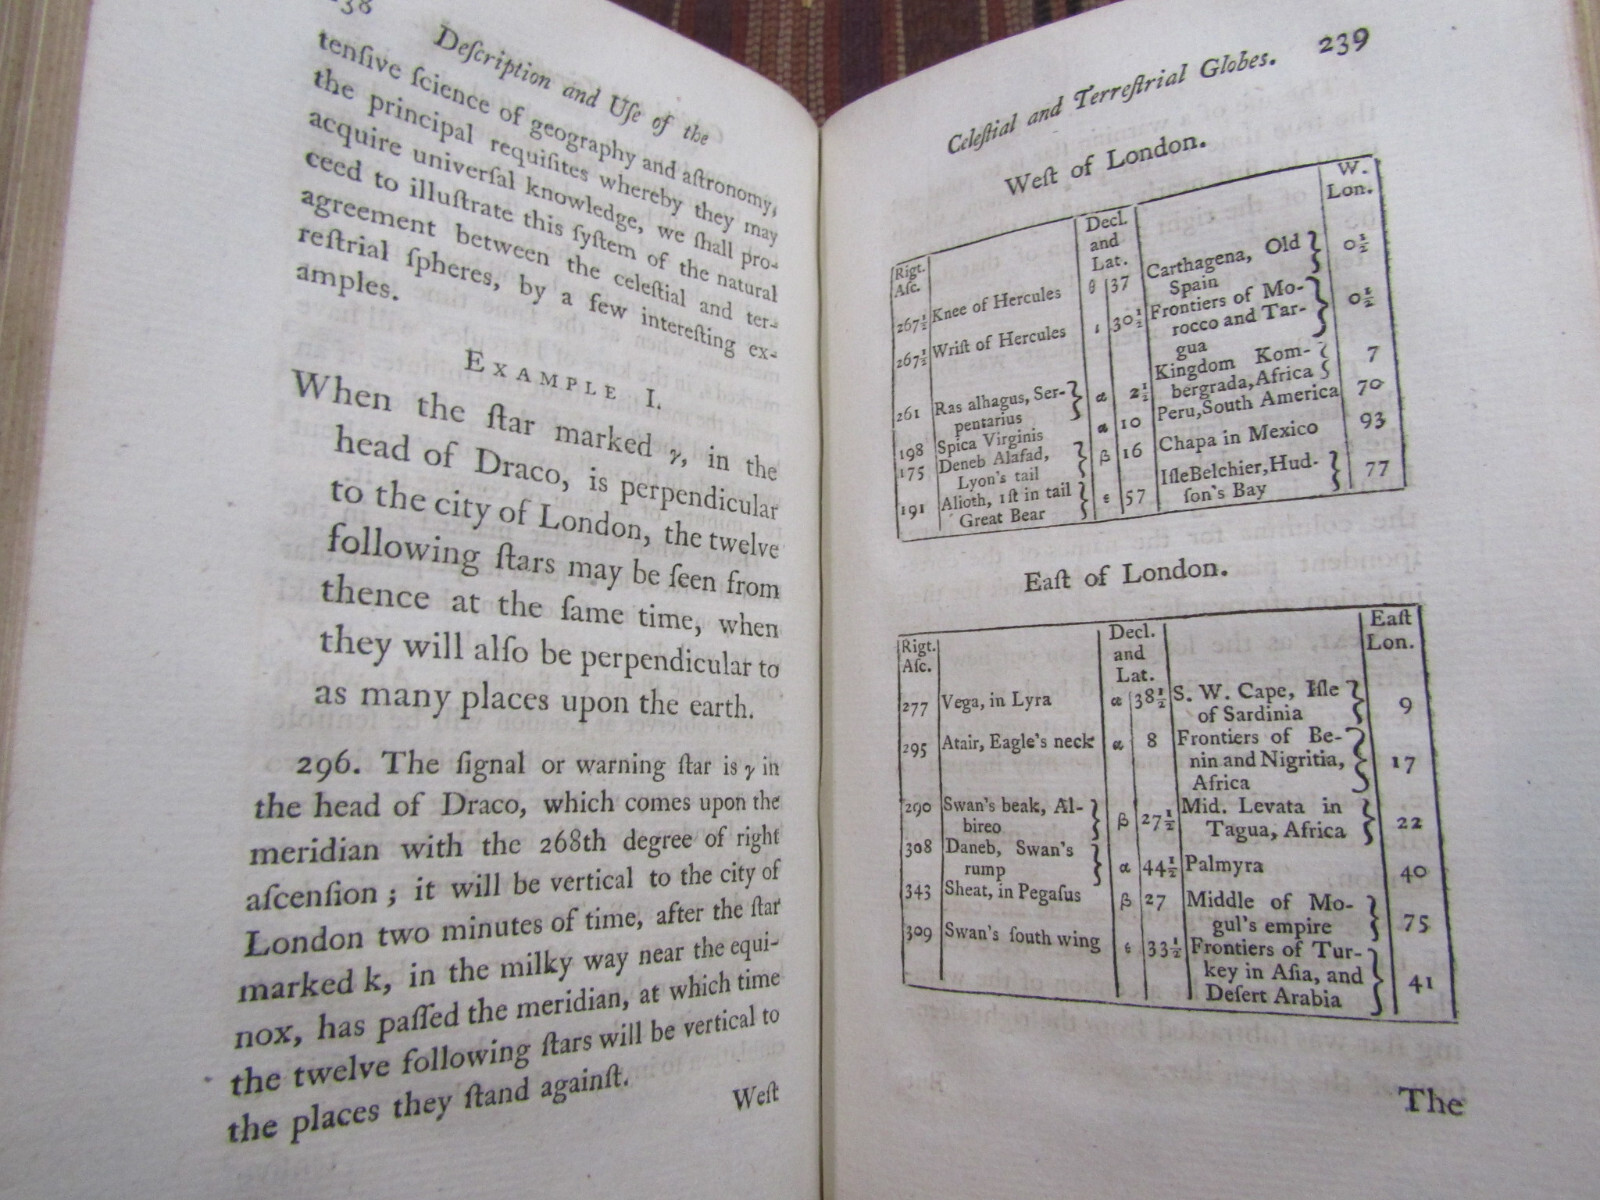 Deſcription and Uſe of the
tenſive ſcience of geography and aſtronomy,
the principal requiſites whereby they may
acquire univerſal knowledge, we ſhall pro-
ceed to illuſtrate this ſyſtem of the natural
agreement between the celeſtial and ter-
reſtrial ſpheres, by a few intereſting ex-
amples.
EXAMPLE I.
When the ſtar marked γ, in the
head of Draco, is perpendicular
to the city of London, the twelve
following ſtars may be ſeen from
thence at the ſame time, when
they will alſo be perpendicular to
as many places upon the earth.
296. The ſignal or warning ſtar is γ in
the head of Draco, which comes upon the
meridian with the 268th degree of right
aſcenſion; it will be vertical to the city of
London two minutes of time, after the ſtar
marked k, in the milky way near the equi-
nox, has paſſed the meridian, at which time
the twelve following ſtars will be vertical to
the places they ſtand againſt.
Weſt
Celeſtial and Terreſtrial Globes. 239
Weſt of London.
Rigt. Aſc. Decl. and Lat. W. Lon.
267½ Knee of Hercules θ 37 Carthagena, Old } 0½
Spain
267½ Wriſt of Hercules ι 30½ Frontiers of Mo- } 0½
rocco and Tar-
gua
261 Ras alhagus, Ser- } α 2½ Kingdom Kom- } 7
pentarius bergrada, Africa
198 Spica Virginis α 10 Peru, South America 70
175 Deneb Alafad, } β 16 Chapa in Mexico 93
Lyon's tail
191 Alioth, 1ſt in tail } ε 57 Iſle Belchier, Hud- } 77
Great Bear ſon's Bay
Eaſt of London.
Rigt. Aſc. Decl. and Lat. Eaſt Lon.
277 Vega, in Lyra α 38½ S. W. Cape, Iſle } 9
of Sardinia
295 Atair, Eagle's neck α 8 Frontiers of Be- } 17
nin and Nigritia,
Africa
290 Swan's beak, Al- } β 27½ Mid. Levata in } 22
bireo Tagua, Africa
308 Daneb, Swan's } α 44½ Palmyra 40
rump
343 Sheat, in Pegaſus β 27 Middle of Mo- } 75
gul's empire
309 Swan's ſouth wing ε 33½ Frontiers of Tur- } 41
key in Aſia, and
Deſert Arabia
The